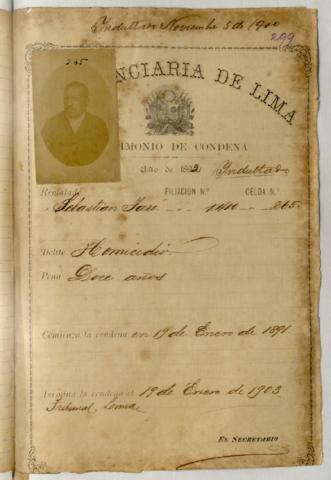 Indultado Noviembre 5 de 1900
299
245
NCIARIA DE LIMA
IMONIO DE CONDENA
Año de 189 Indultado
Rematado FILIACION N.º CELDA N.º
Sebastian 245
Delito Homicidio
Pena Doce años
Comienza la condena en 19 de Enero de 1891.
Termina la condena el 19 de Enero de 1903
Tribunal, Lima
EL SECRETARIO